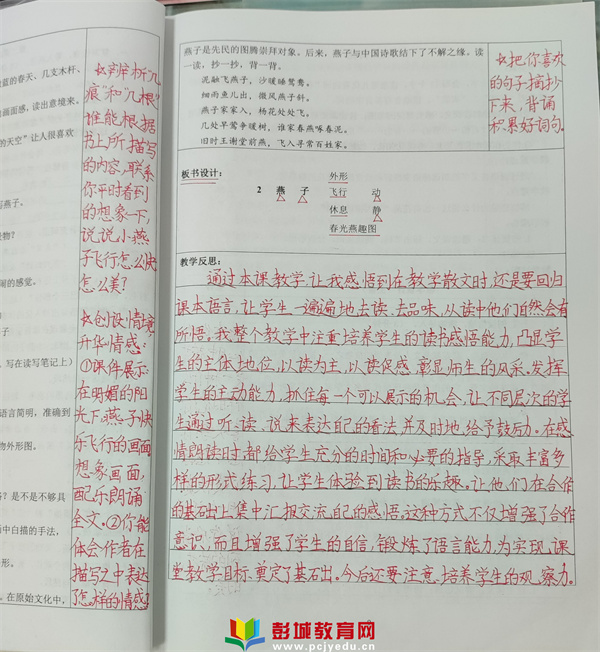 蓝的春天、几支木杆、
画面感,读出意境来。
的天空”让人很喜欢
燕子。
物?
的感觉。
子
写在读写笔记上)
语言简明,准确到
物外形图。
?是不是不够具
中白描的手法,
形。
在原始文化中,
辨析“几
痕”和“几根”
谁能根据
书上所描写
的内容,联系
你平时看到
的想象一下,
说说小燕
子飞行怎么快
怎么美?
创设情境
升华情感:
①课件展示:
在明媚的阳
光下,燕子快
乐飞行的画面
想象画面,
配乐朗诵
全文。②你能
体会作者在
描写之中表达
了怎样的情感?
燕子是先民的图腾崇拜对象。后来,燕子与中国诗歌结下了不解之缘。读一
读,抄一抄,背一背。
泥融飞燕子,沙暖睡鸳鸯。
细雨鱼儿出,微风燕子斜。
燕子家家入,杨花处处飞。
几处早莺争暖树,谁家春燕啄春泥。
旧时王谢堂前燕,飞入寻常百姓家。
把你喜欢
的句子摘抄
下来,背诵
积累好词句.
板书设计:
外形
2 燕 子 飞行 动
休息 静
春光燕趣图
教学反思:
通过本课教学,让我感悟到在教学散文时,还是要回归
课本语言,让学生一遍遍地去读、去品味,从读中他们自然会有
所悟。我整个教学中注重培养学生的读书感悟能力,凸显学
生的主体地位,以读为主,以读促感,彰显师生的风采。发挥
学生的主动能力,抓住每一个可以展示的机会,让不同层次的学
生通过听、读、说来表达自己的看法并及时地给予鼓励。在感
情朗读时,都给学生充分的时间和必要的指导,采取丰富多
样的形式练习,让学生体验到读书的乐趣。让他们在合作
的基础上,集中汇报交流自己的感悟。这种方式不仅增强了合作
意识,而且增强了学生的自信,锻炼了语言能力,为实现课
堂教学目标,奠定了基础。今后还要注意培养学生的观察力。
彭城教育网
www.pcjyedu.cn